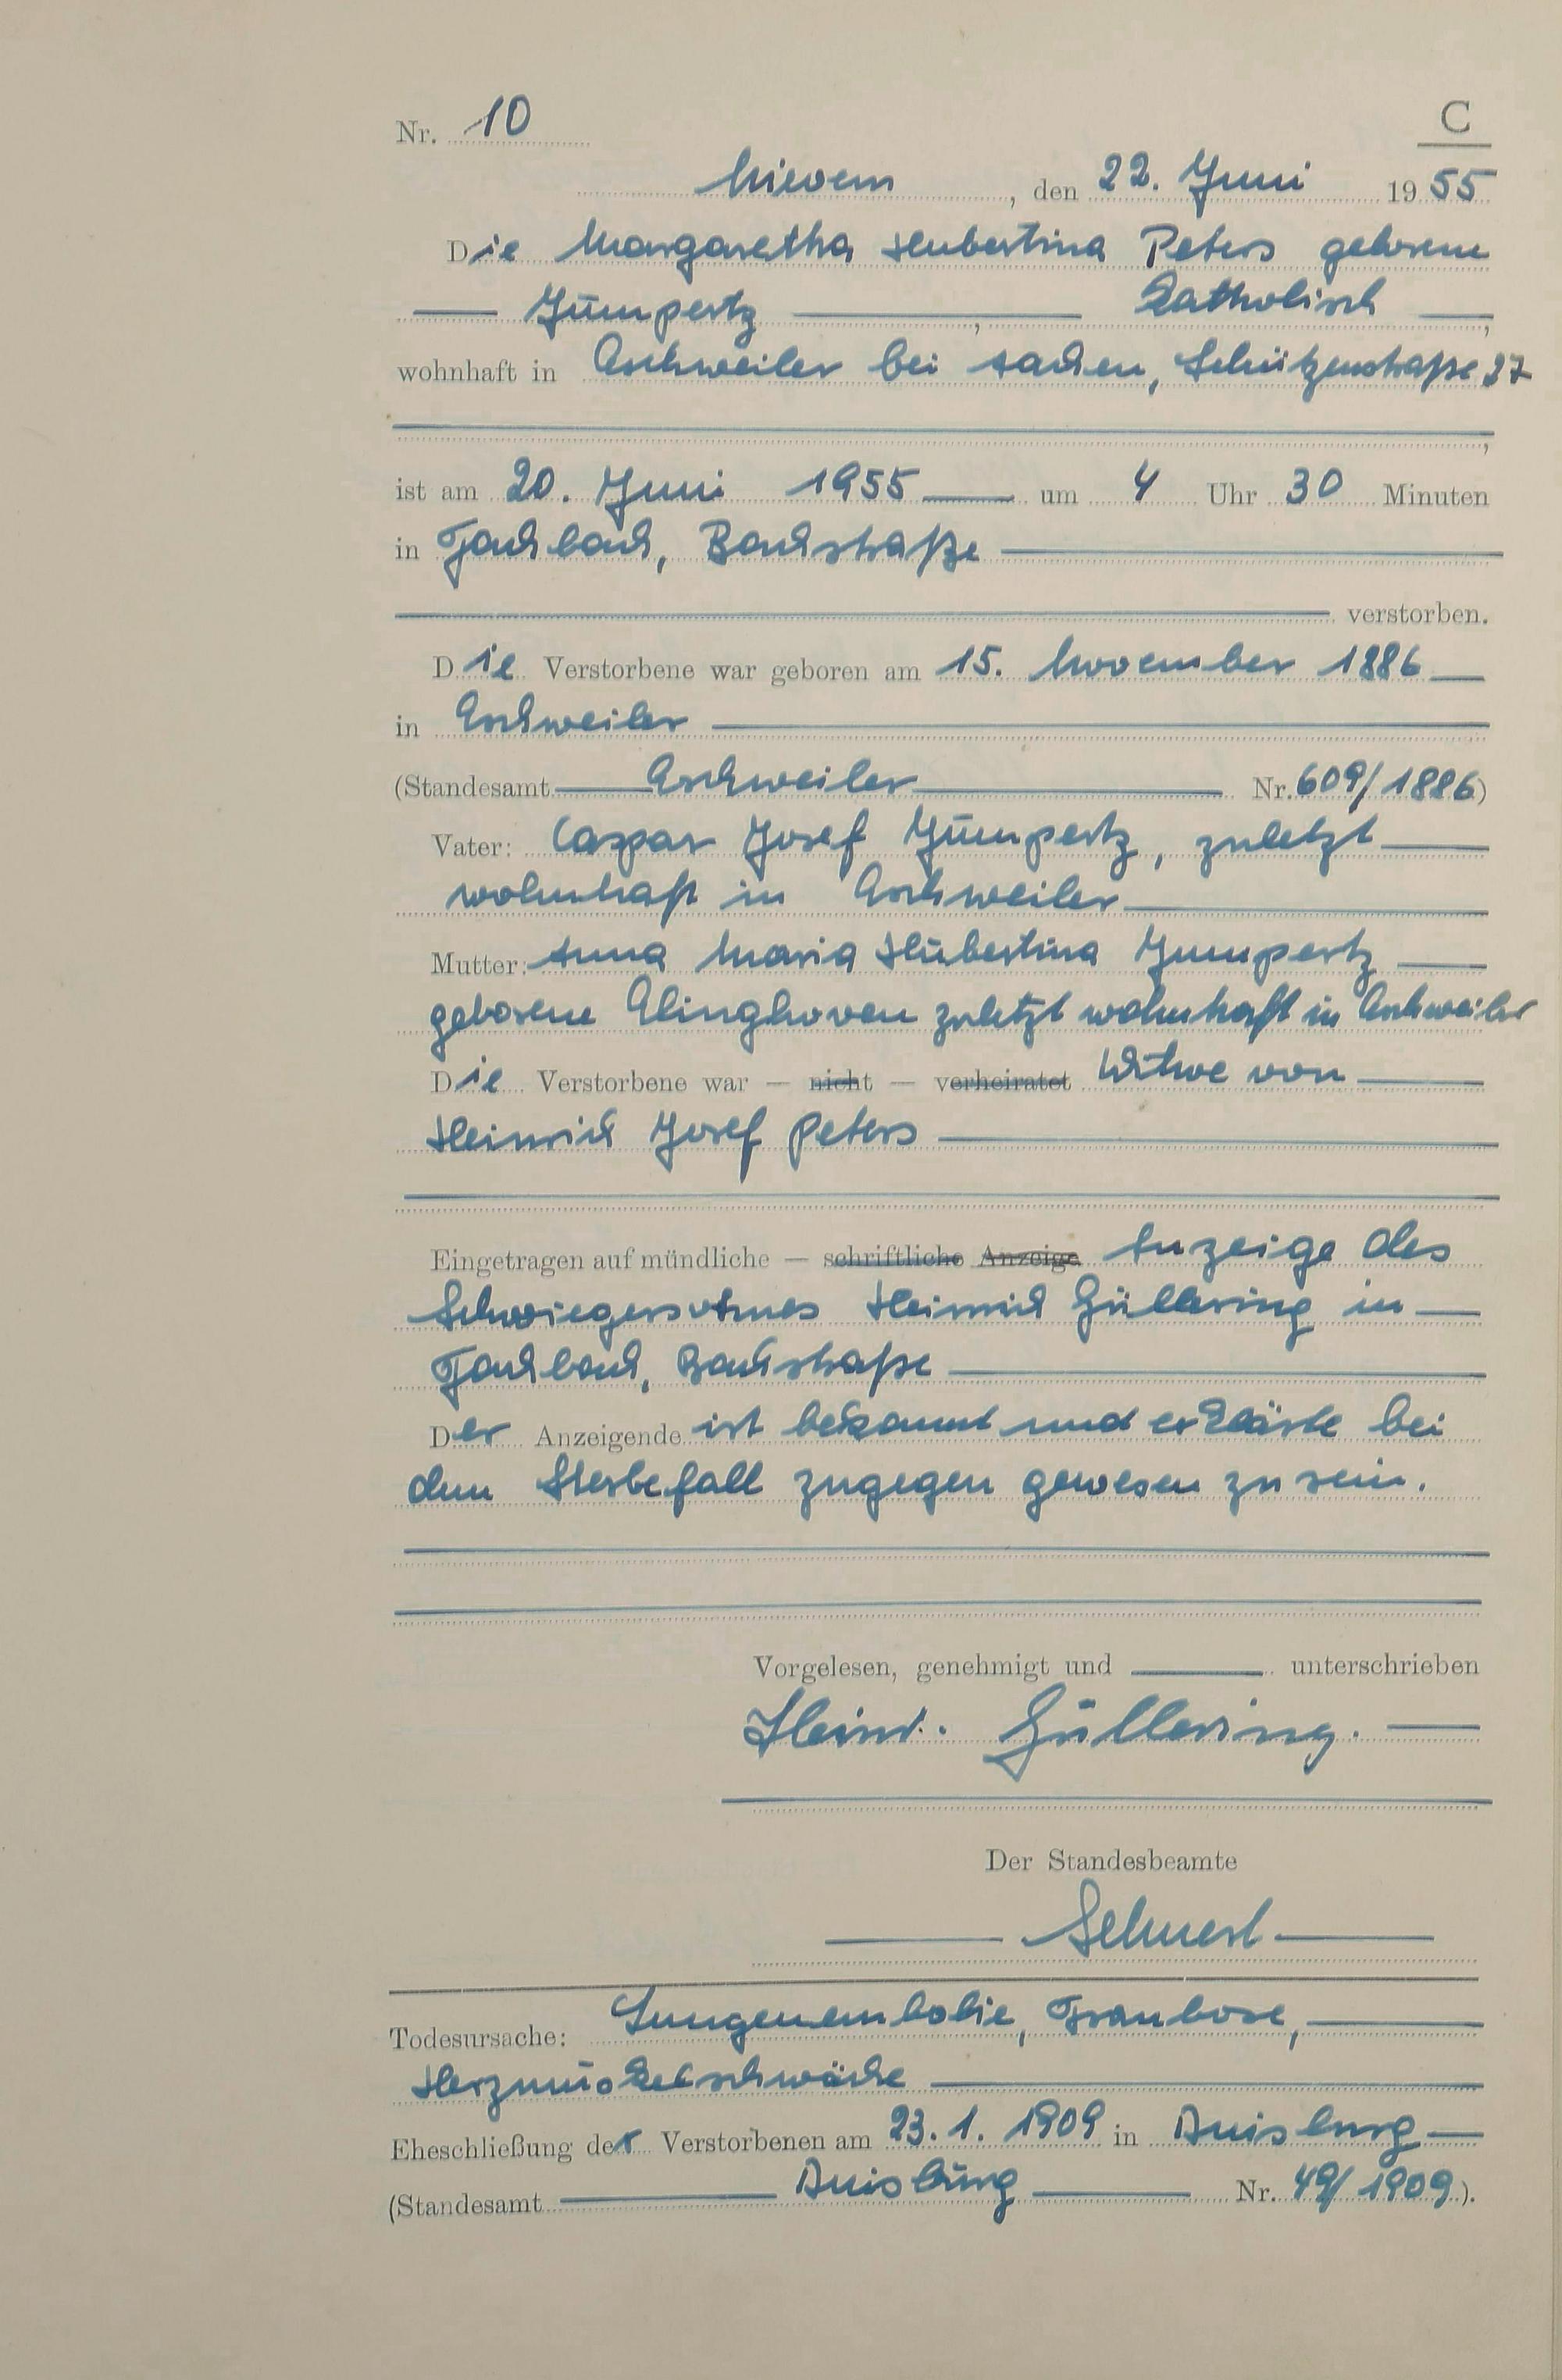 Nr. 10 C
Mievern, den 22. Juni 1955
Die Margaretha Hubertina Peters geborene
— Jümpertz —, — katholisch —,
wohnhaft in Eschweiler bei Aachen, Schützenstraße 37
ist am 20. Juni 1955 — um 4 Uhr 30 Minuten
in Fachbach, Bachstraße —
— verstorben.
Die Verstorbene war geboren am 15. November 1886 —
in Eschweiler —
(Standesamt — Eschweiler — Nr. 609/1886)
Vater: Caspar Josef Jümpertz, zuletzt —
wohnhaft in Eschweiler —
Mutter: Anna Maria Hubertina Jumpertz —
geborene Elinghoven zuletzt wohnhaft in Eschweiler
Die Verstorbene war — nicht — verheiratet Witwe von —
Heinrich Josef Peters —
Eingetragen auf mündliche — schriftliche Anzeige Anzeige des
Schwiegersohnes Heinrich Güllering in —
Fachbach, Bachstraße —
Der Anzeigende ist bekannt und erklärte bei
dem Sterbefall zugegen gewesen zu sein.
Vorgelesen, genehmigt und — unterschrieben
Heinr. Güllering. —
Der Standesbeamte
Todesursache: Lungenembolie, Trombose, —
Herzmuskelschwäche —
Eheschließung der Verstorbenen am 23.1.1909 in Duisburg —
(Standesamt — Duisburg — Nr. 49/1909).